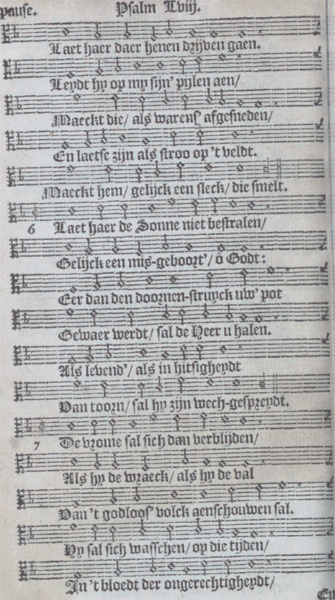 pause. Psalm Lviij.
Laet haer daer henen drijven gaen.
Leydt hy op my sijn' pijlen aen/
Maeckt die/ als warens' afgesneden/
En laetse zijn als stroo op 't veldt.
Maeckt hem/ gelijck een sleck/ die smelt.
6 Laet haer de Sonne niet bestralen/
Gelijck een mis-geboort'/ ô Godt:
Eer dan den doornen-struyck uw' pot
Gewaer werdt/ sal de Heer u halen.
Als levend'/ als in hitsigheydt
Van toorn/ sal hy zijn wech-gespreydt.
7 De vrome sal sich dan verblijden/
Als hy de wraeck/ als hy de val
Van 't godloos' volck aenschouwen sal.
Hy sal sich wasschen/ op die tijden/
In 't bloedt der ongerechtigheydt/